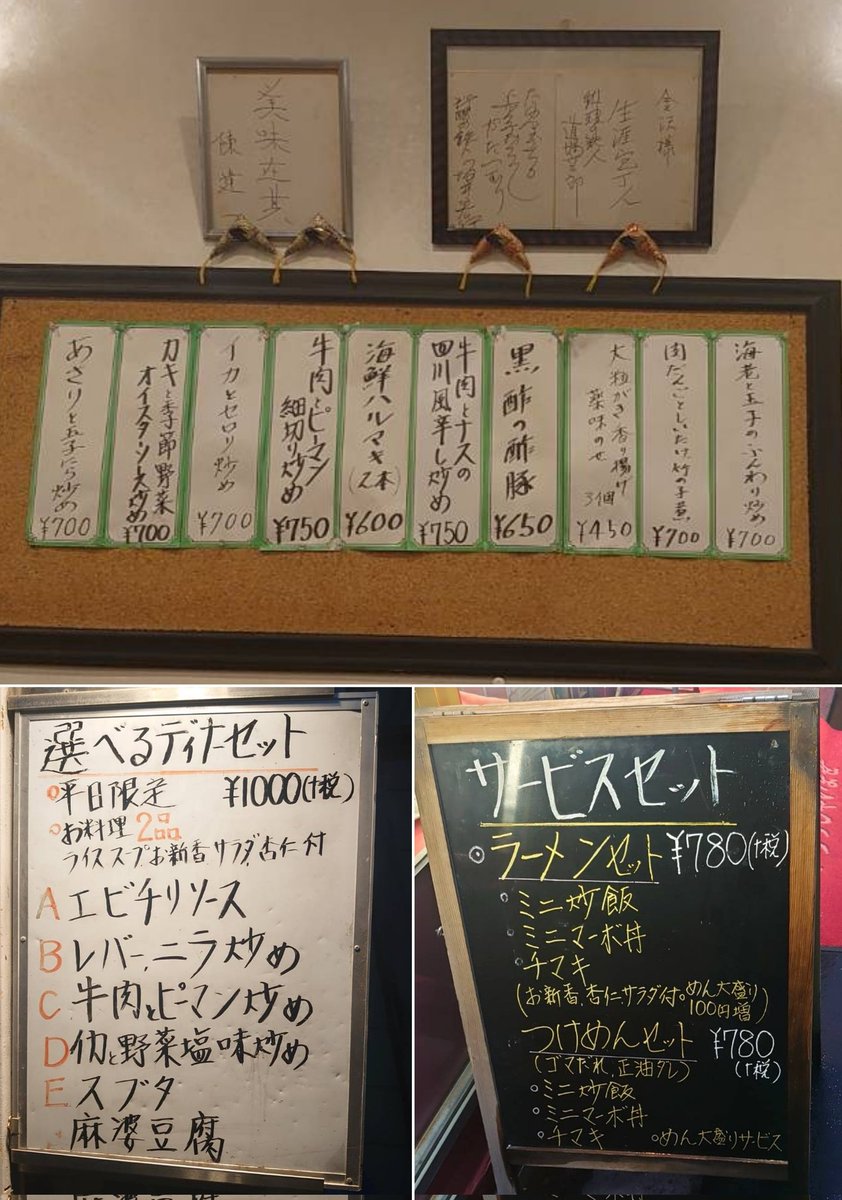 美味在其
金沢様
生涯包丁人
海老と玉子のふんわり炒め
¥700
肉だんごとしいたけ、竹の子煮
¥700
大粒がき香り揚げ
薬味のせ
3個
¥450
黒酢の酢豚
¥650
牛肉とナスの
四川風辛し炒め
¥750
海鮮ハルマキ(2本)
¥600
牛肉とピーマン
細切り炒め
¥750
イカとセロリ炒め
¥700
カキと季節野菜
オイスターソース炒め
¥700
あさりと玉子にら炒め
¥700
選べるディナーセット
平日限定 ¥1000(+税)
お料理2品
ライス スープ お新香 サラダ 杏仁 付
A エビチリソース
B レバー、ニラ炒め
C 牛肉とピーマン炒め
D イカと野菜塩味炒め
E スブタ
麻婆豆腐
サービスセット
ラーメンセット ¥780(+税)
ミニ炒飯
ミニマーボ丼
チマキ
(お新香、杏仁、サラダ付。めん大盛り
100円増)
つけめんセット ¥780
(ゴマだれ、正油タレ) (+税)
ミニ炒飯
ミニマーボ丼
チマキ めん大盛りサービス